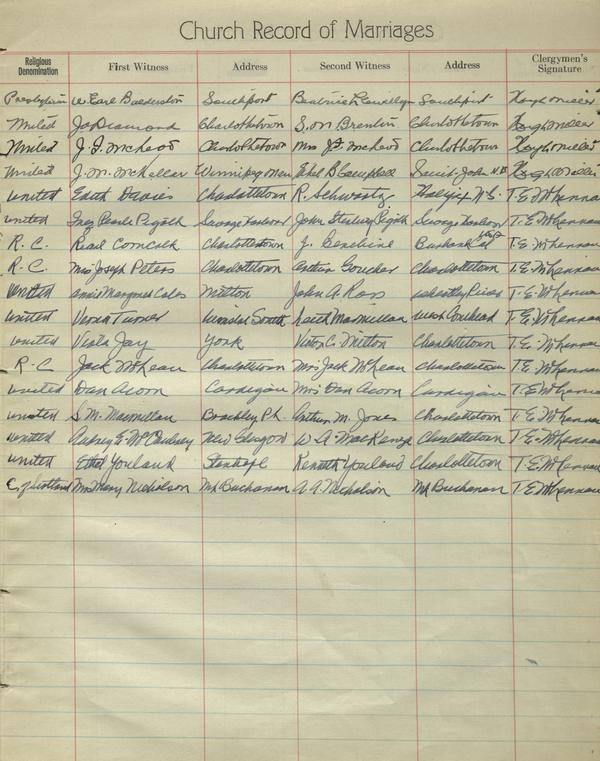 Church Record of Marriages
Religious Denomination First Witness Address Second Witness Address Clergymen's Signature
Presbyterian W. Earl Southport Beatrice Southport Hugh Miller
United Diamond Charlottetown Charlottetown Hugh Miller
United J. F. McLeod Charlottetown Mrs J F McLeod Charlottetown Hugh Miller
United J. M. McKellar Winnipeg Man Ethel B Campbell Saint John N.B Hugh Miller
United Edith Davies Charlottetown R. Schwartz Halifax N.S. T. E. McLennan
United Pearle Savage Harbour John Savage Harbour T. E. McLennan
R. C. Pearl Charlottetown J. Burbank Cal T. E. McLennan
R. C. Mrs Joseph Peters Charlottetown Arthur Charlottetown T. E. McLennan
United Annie Margaret Coles Milton John A. Ross Wheatley River T. E. McLennan
United Verna Turner South Keith MacMillan T. E. McLennan
United Viola Jay York C. Milton Charlottetown T. E. McLennan
R-C Jack McLean Charlottetown Mrs Jack McLean Charlottetown T. E. McLennan
United Dan Acorn Cardigan Mrs Dan Acorn Cardigan T. E. McLennan
United S. M. Macmillan Brackley Pt. Arthur M. Jones Charlottetown T. E. McLennan
United Audrey E. New Glasgow W A. MacKenzie Charlottetown T. E. McLennan
United Ethel Youland Stanhope Kenneth Youland Charlottetown T. E. McLennan
C. of Scotland Mrs Mary Nicholson Mt Buchanan A. A. Nicholson Mt Buchanan T. E. McLennan